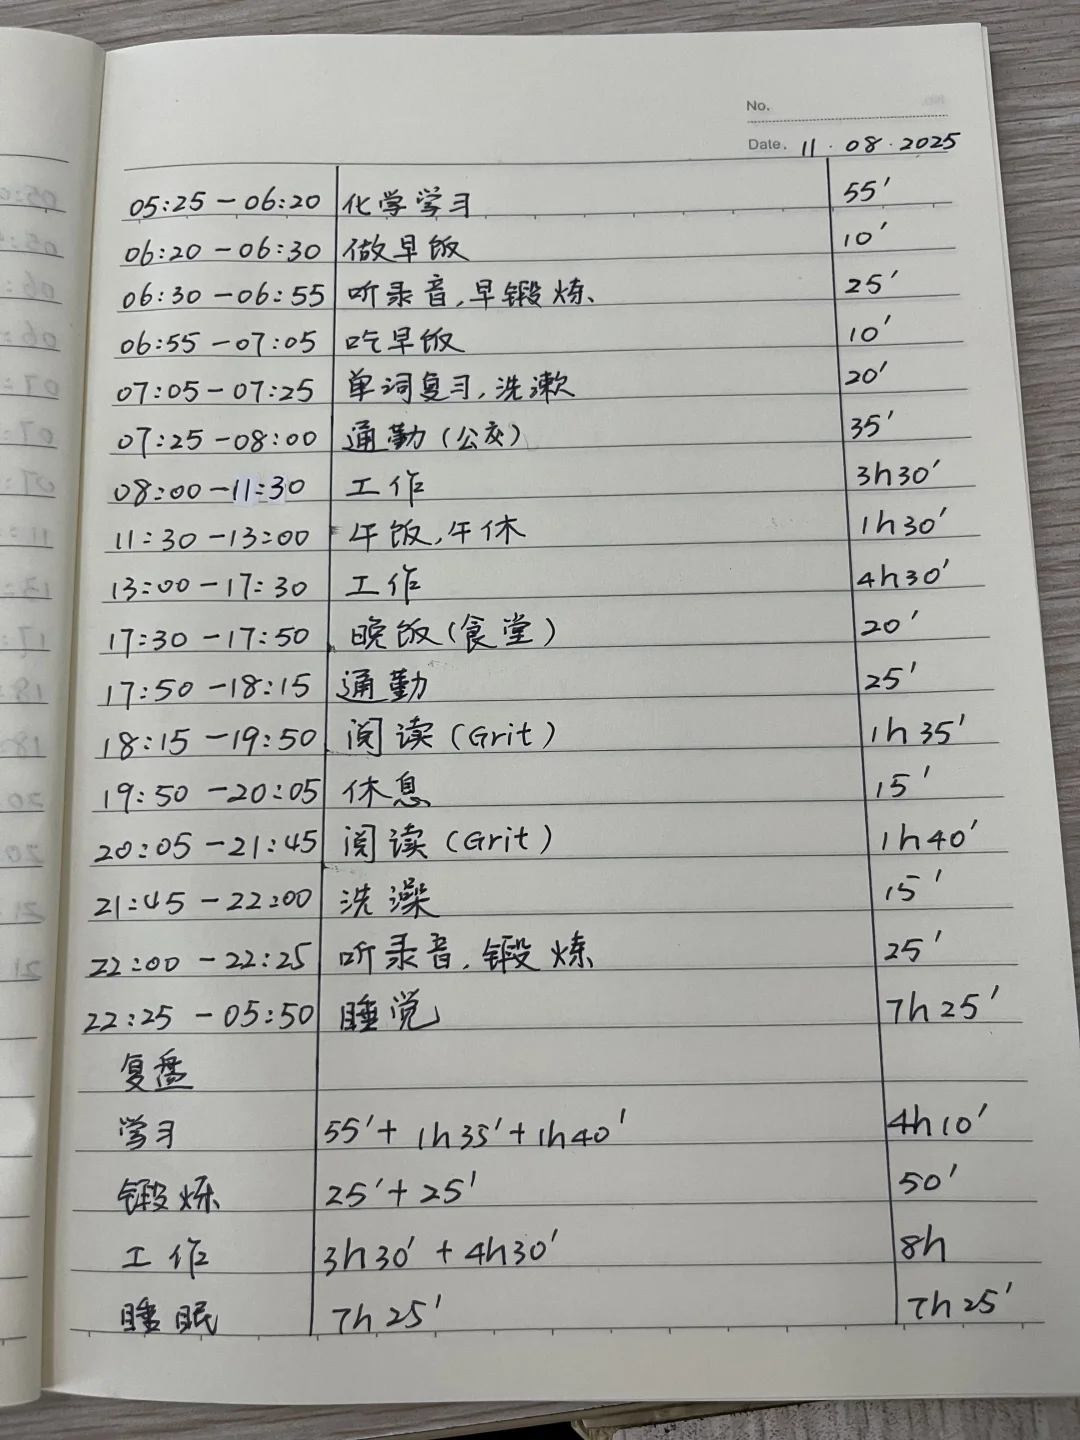 No.
Date. 11.08.2025
05:25-06:20 化学学习 55'
06:20-06:30 做早饭 10'
06:30-06:55 听录音,早锻炼、 25'
06:55-07:05 吃早饭 10'
07:05-07:25 单词复习,洗漱 20'
07:25-08:00 通勤(公交) 35'
08:00-11:30 工作 3h30'
11:30-13:00 午饭,午休 1h30'
13:00-17:30 工作 4h30'
17:30-17:50 晚饭(食堂) 20'
17:50-18:15 通勤 25'
18:15-19:50 阅读(Grit) 1h35'
19:50-20:05 休息 15'
20:05-21:45 阅读(Grit) 1h40'
21:45-22:00 洗澡 15'
22:00-22:25 听录音,锻炼 25'
22:25-05:50 睡觉 7h25'
复盘
学习 55'+1h35'+1h40' 4h10'
锻炼 25'+25' 50'
工作 3h30'+4h30' 8h
睡眠 7h25' 7h25'